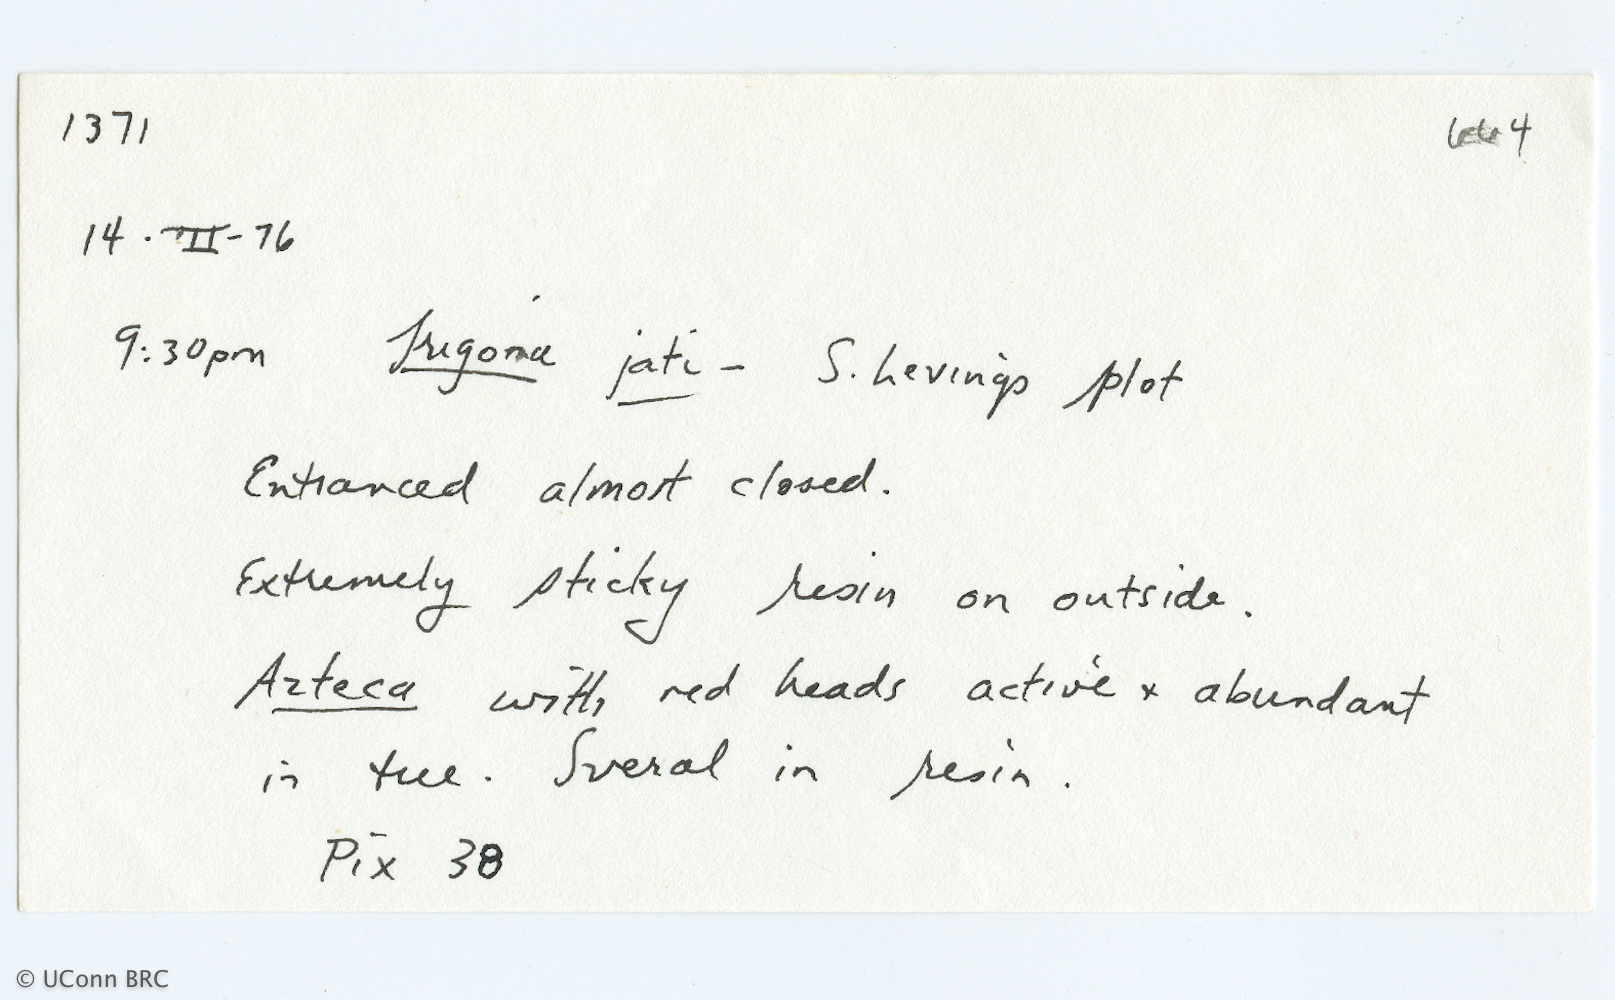 1371
14 · III-76
9:30pm Trigona jati - S. Levings plot
Entranced almost closed.
Extremely sticky resin on outside.
Azteca with red heads active + abundant
in tree. Sveral in resin.
Pix 38
© UConn BRC